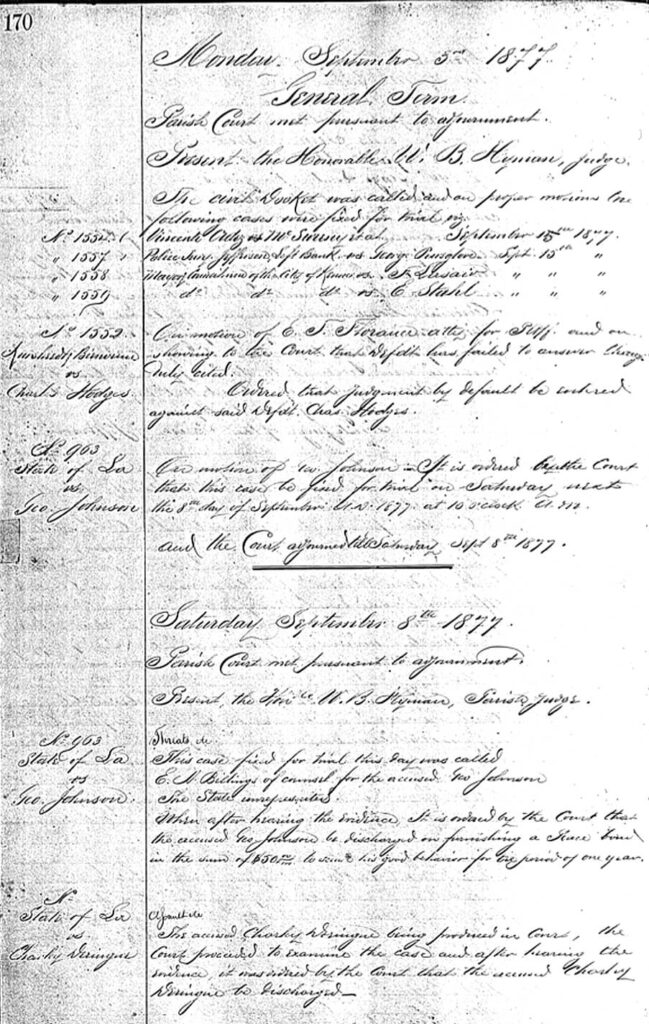 170
Monday September 3rd 1877
General Term
Parish Court met pursuant to adjournment.
Present the Honorable W. B. Hyman, Judge.
The civil Docket was called and on proper motions the
following cases were fixed for trial viz
No 1554 Vincent vs McSweeney et al September 15th 1877.
" 1557 Police Jury Jefferson Left Bank vs George Sept. 15th "
" 1558 of the City of vs. " " "
" 1559 do do do vs E. Stahl " " "
No 1552
vs
Charles Hodges
On motion of E. T. Florance atty for Plff. and on
showing to the Court that Defdt has failed to answer though
duly cited.
Ordered that judgment by default be entered
against said Defdt. Chas. Hodges.
No 963
State of La
vs
Geo. Johnson
On motion of Geo Johnson It is ordered by the Court
that this case be fixed for trial on Saturday next
the 8th day of September A.D. 1877 at 10 o'clock A.M.
and the Court adjourned till Saturday Sept 8th 1877.
Saturday September 8th 1877.
Parish Court met pursuant to adjournment.
Present, the Honble W. B. Hyman, Parish Judge.
No 963
State of La
vs
Geo Johnson.
Threats &c
This case fixed for trial this day was called
E. W. Billings of counsel for the accused Geo Johnson
The State unrepresented.
When after hearing the evidence It is ordered by the Court that
the accused Geo Johnson be discharged on furnishing a Peace bond
in the sum of $50 his good behavior for the period of one year.
No
State of La
vs
Charley Deringue
Assault &c
The accused Charley Deringue being produced in Court, the
Court proceeded to examine the case and after hearing the
evidence, it was ordered by the Court that the accused Charley
Deringue be discharged